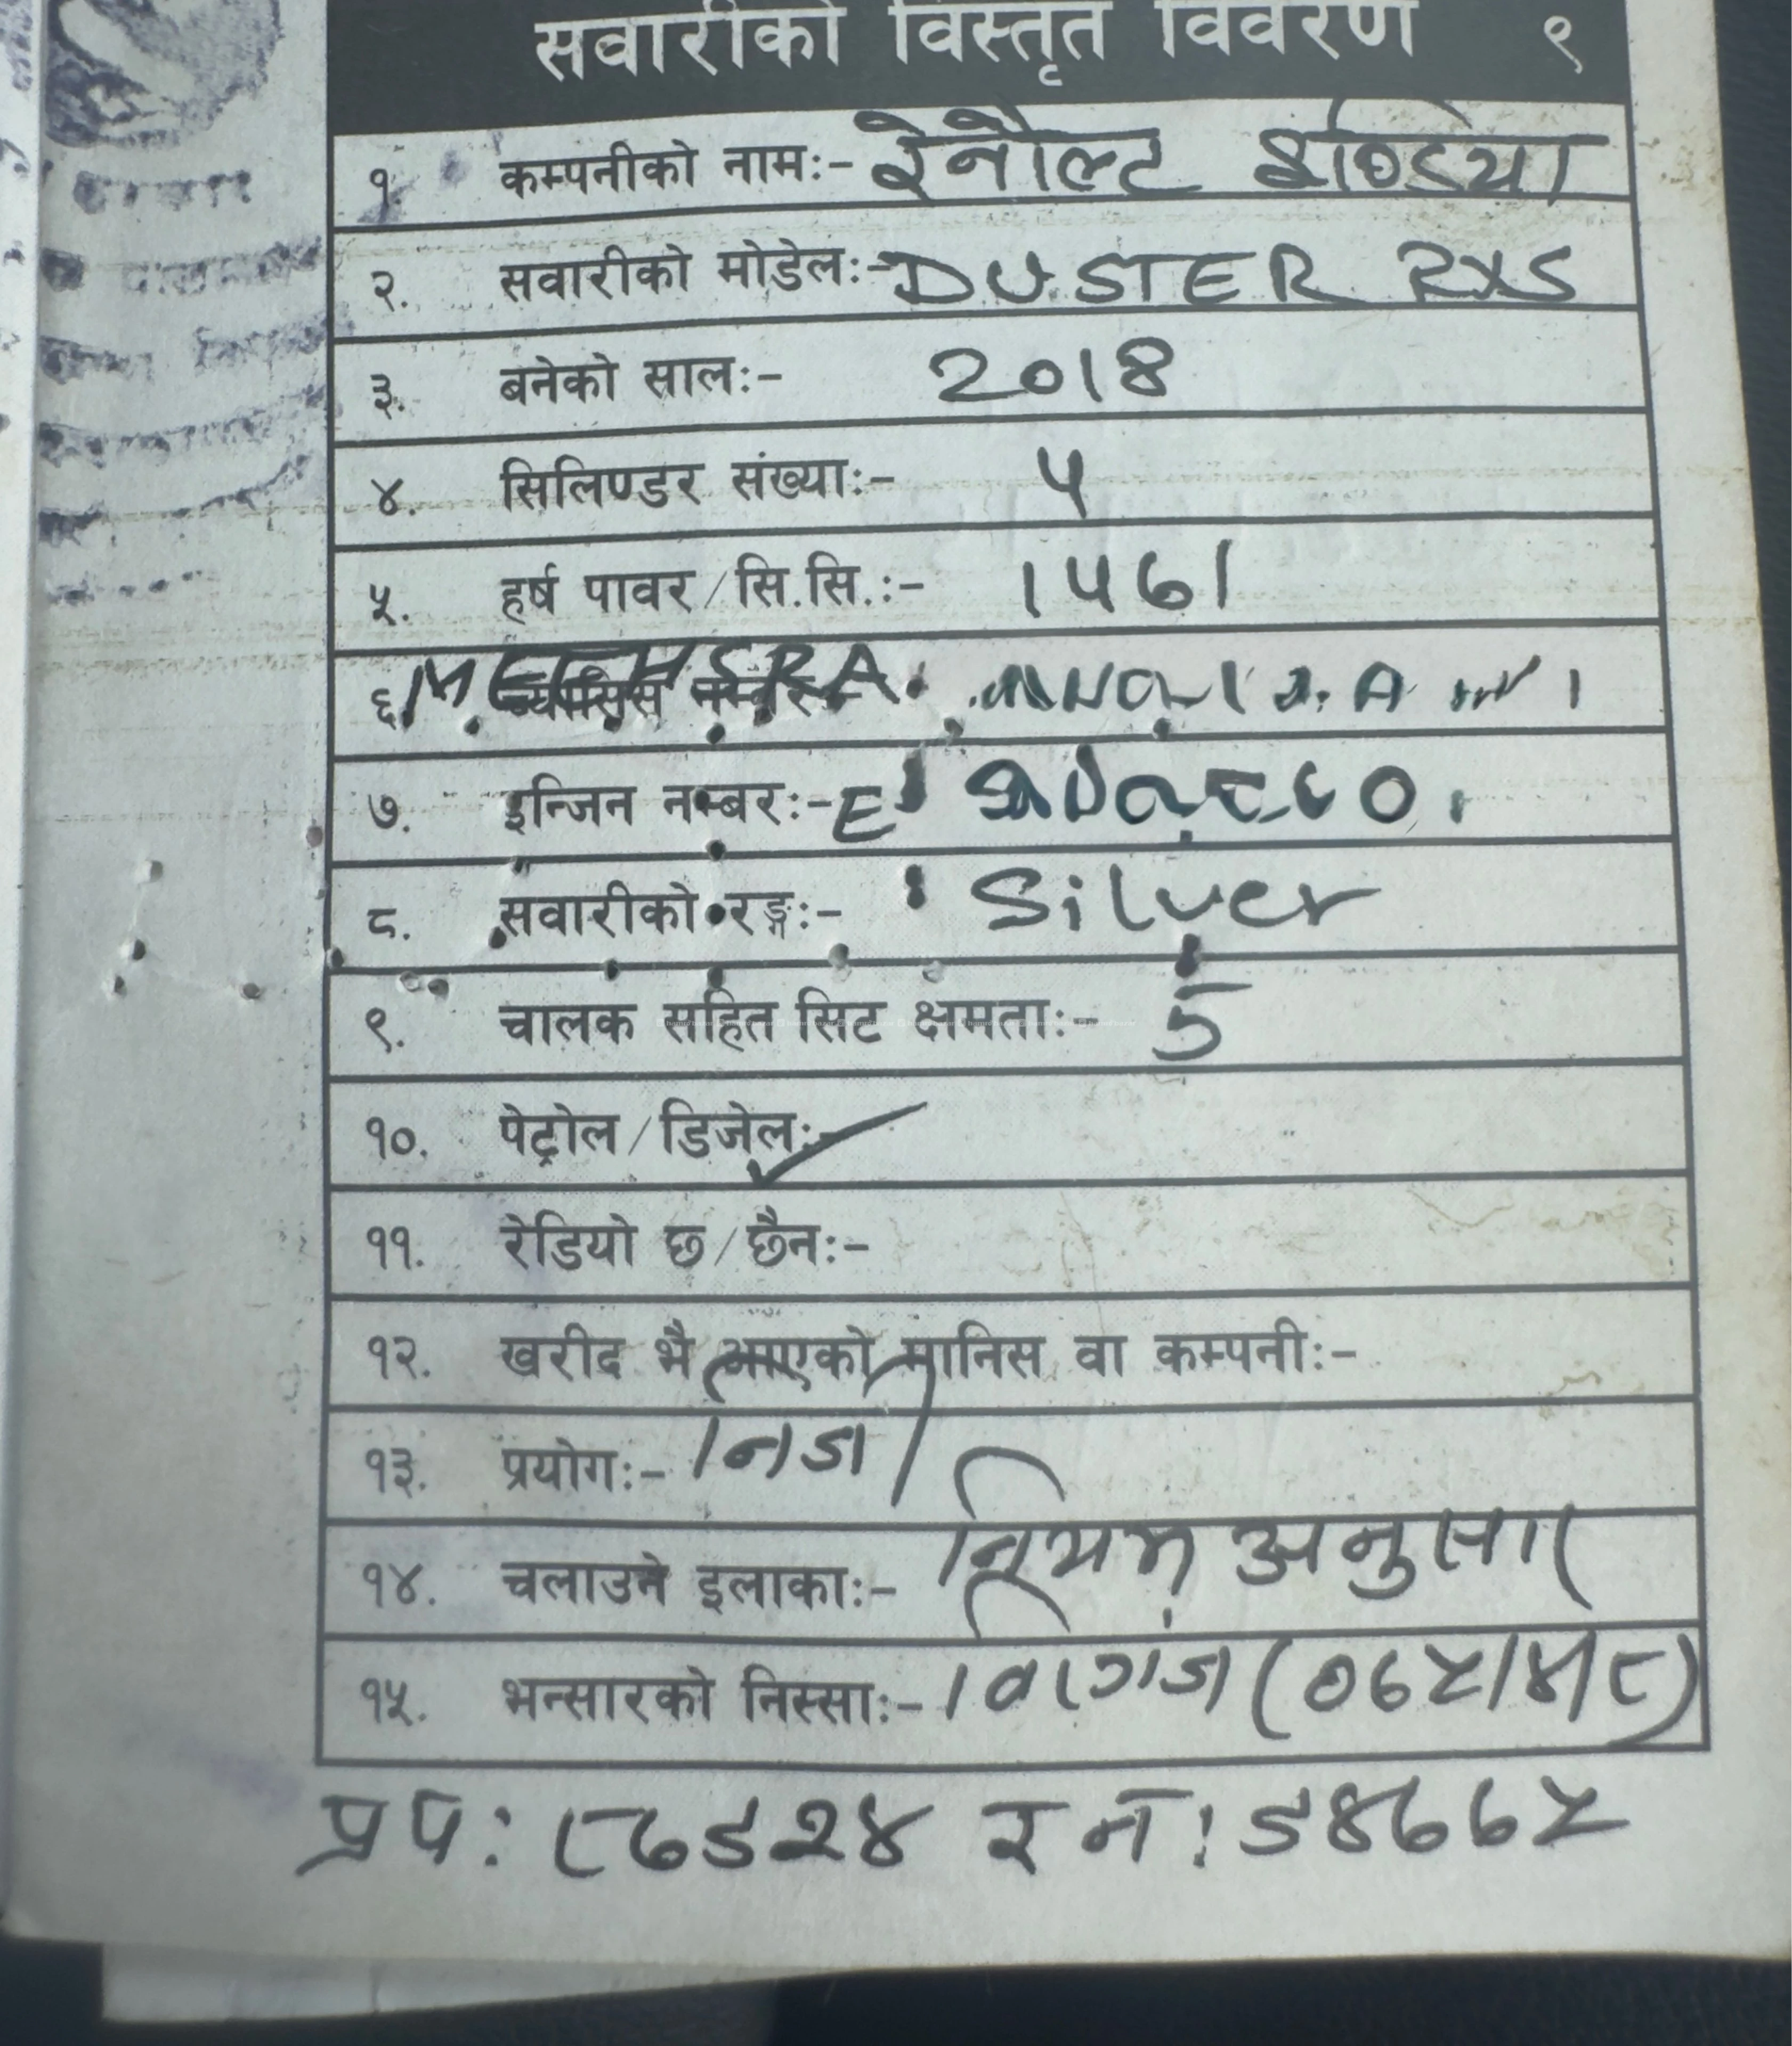 सवारीको विस्तृत विवरण ९
१. कम्पनीको नाम:- रेनौल्ट इण्डिया
२. सवारीको मोडेल:- DUSTER RXS
३. बनेको साल:- 2018
४. सिलिण्डर संख्या:- 4
५. हर्ष पावर/सि.सि.:- 1461
६. च्यासिस नम्बर:-
७. इन्जिन नम्बर:- E
८. सवारीको रङ्ग:- Silver
९. चालक सहित सिट क्षमता:- 5
१०. पेट्रोल/डिजेल:-
११. रेडियो छ/छैन:-
१२. खरीद भै आएको मानिस वा कम्पनी:-
१३. प्रयोग:- निजी
१४. चलाउने इलाका:- नियम अनुसार
१५. भन्सारको निस्सा:-
प्रप: